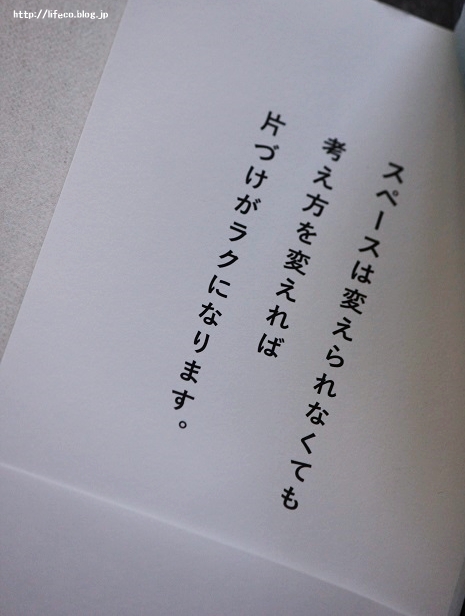 http://lifeco.blog.jp
スペースは変えられなくても
考え方を変えれば
片づけがラクになります。